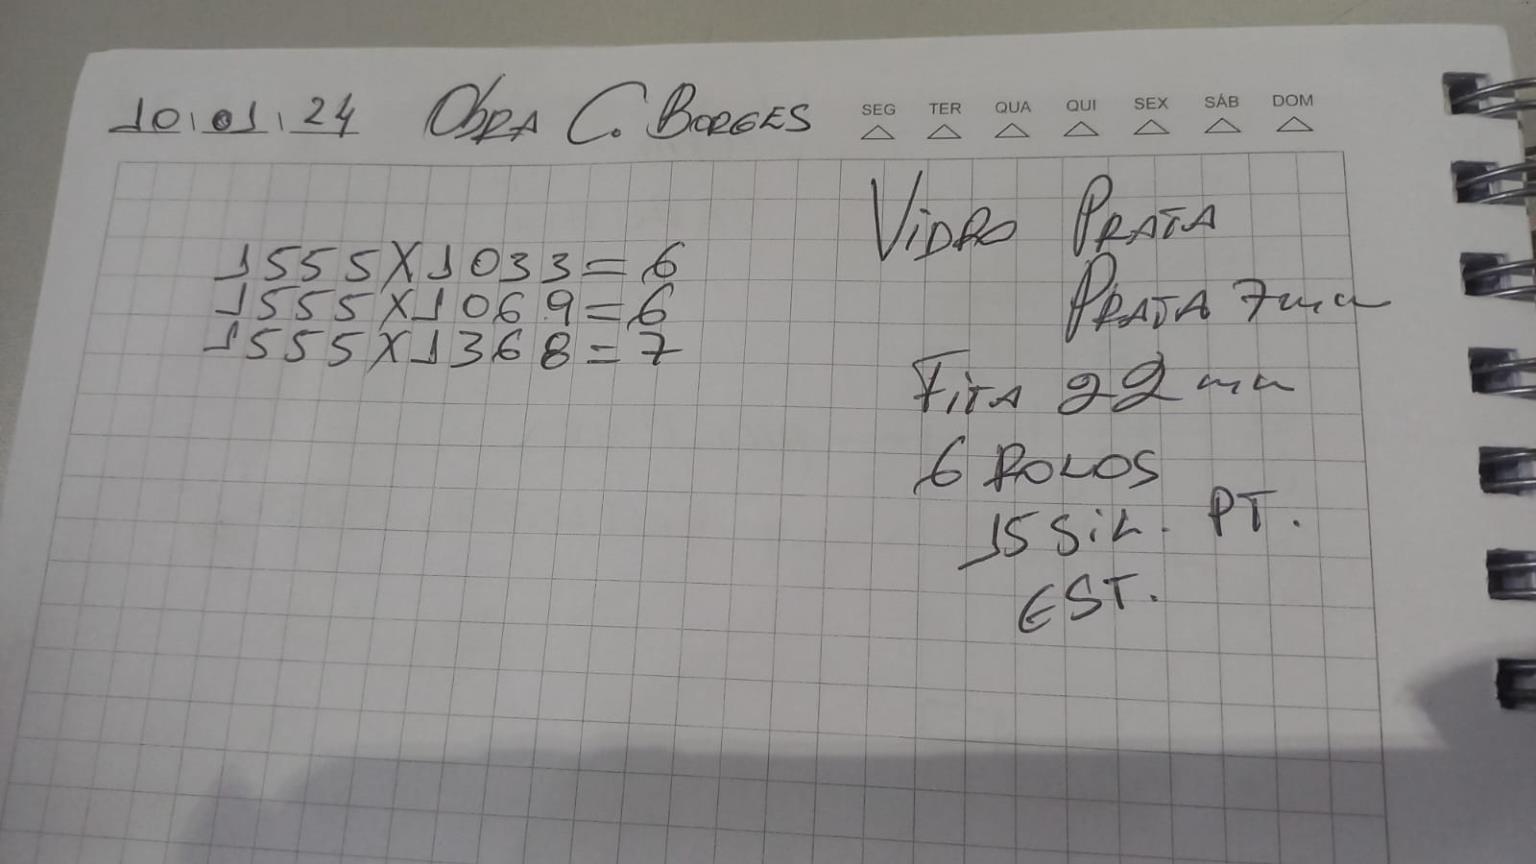 10.01.24 OBRA C. BORGES SEG TER QUA QUI SEX SÁB DOM
1555X1033=6
1555X1069=6
1555X1368=7
VIDRO PRATA
PRATA 7mm
FITA 22mm
6 ROLOS
15 SIL. PT.
EST.